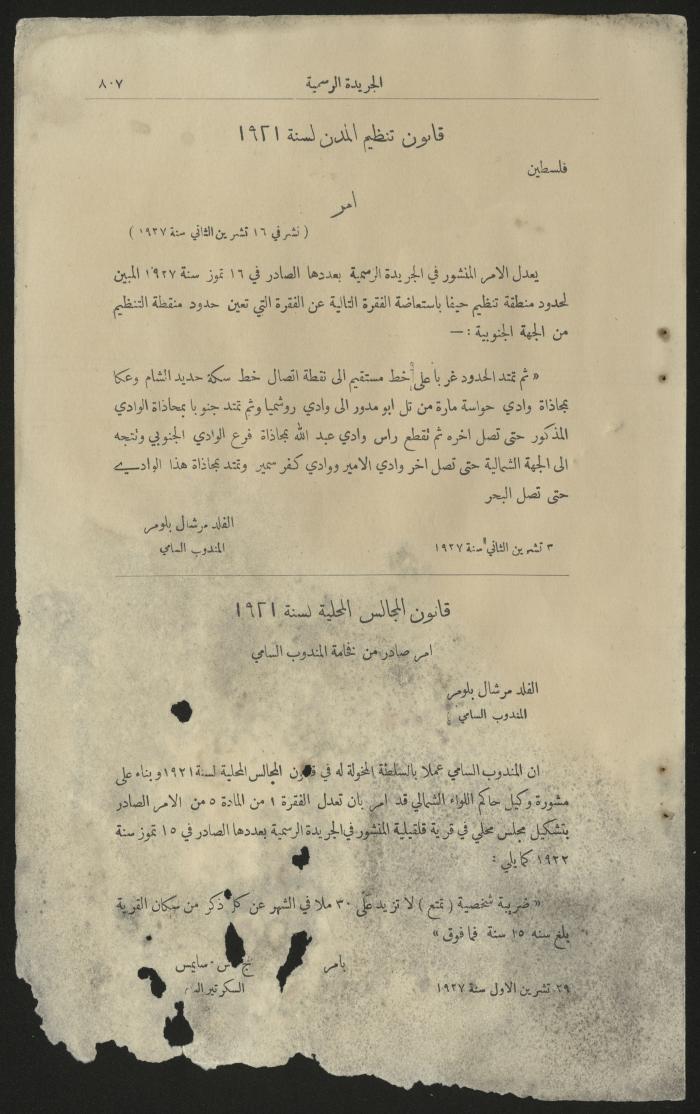 الجريدة الرسمية ٨٠٧
قانون تنظيم المدن لسنة ١٩٢١
فلسطين
امر
( نشر في ١٦ تشرين الثاني سنة ١٩٢٧ )
يعدل الامر المنشور في الجريدة الرسمية بعددها الصادر في ١٦ تموز سنة ١٩٢٧ المبين
لحدود منطقة تنظيم حيفا باستعاضة الفقرة التالية عن الفقرة التي تعين حدود منقطة التنظيم
من الجهة الجنوبية : —
« ثم تمتد الحدود غربا على خط مستقيم الى نقطة اتصال خط سكة حديد الشام وعكا
بمحاذاة وادي حواسة مارة من تل ابو مدور الى وادي روشميا وثم تمتد جنوبا بمحاذاة الوادي
المذكور حتى تصل اخره ثم تقطع راس وادي عبد الله بمحاذاة فرع الوادي الجنوبي وتتجه
الى الجهة الشمالية حتى تصل اخر وادي الامير ووادي كفر سمير وتمتد بمحاذاة هذا الوادي
حتى تصل البحر
الفلد مرشال بلومر
المندوب السامي
٣ تشرين الثاني سنة ١٩٢٧
قانون المجالس المحلية لسنة ١٩٢١
امر صادر من فخامة المندوب السامي
الفلد مرشال بلومر
المندوب السامي
ان المندوب السامي عملا بالسلطة المخولة له في قانون المجالس المحلية لسنة ١٩٢١ وبناء على
مشورة وكيل حاكم اللواء الشمالي قد امر بان تعدل الفقرة ١ من المادة ٥ من الامر الصادر
بتشكيل مجلس محلي في قرية قلقيلية المنشور في الجريدة الرسمية بعددها الصادر في ١٥ تموز سنة
١٩٢٢ كما يلي :
« ضريبة شخصية ( تمتع ) لا تزيد على ٣٠ ملا في الشهر عن كل ذكر من سكان القرية
بلغ سنه ١٥ سنة فما فوق »
بامر
سايمس
السكرتير
٢٩ تشرين الاول سنة ١٩٢٧